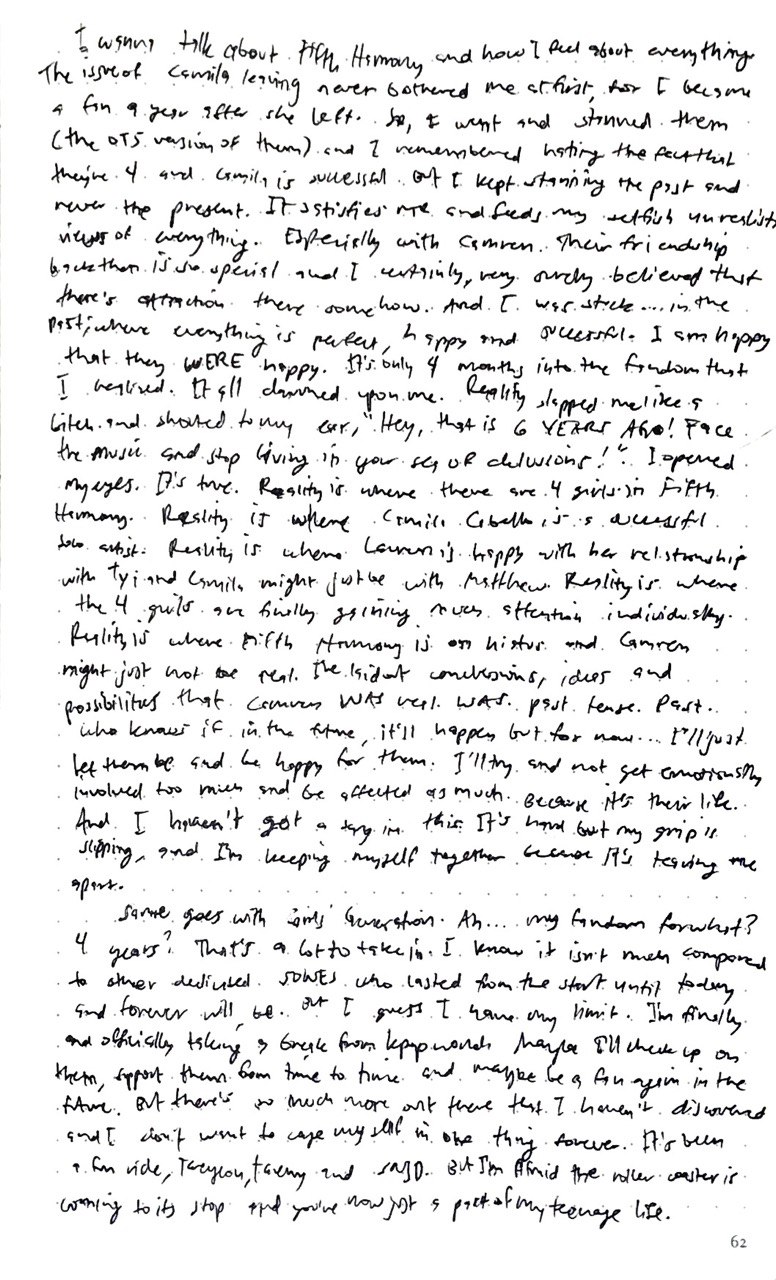 I wanna talk about Fifth Harmony and how I feel about everything
The issue of Camila leaving never bothered me at first, for I became
a fan a year after she left. So, I went and stanned them
(the OT5 version of them) and I remembered hating the fact that
they're 4 and Camila is successful. But I kept stanning the past and
never the present. It satisfies me and feeds my selfish unrealistic
views of everything. Especially with Camren. Their friendship
back then is so special and I certainly, very surely believed that
there's attraction there somehow. And I was stuck... in the
past; where everything is perfect, happy and successful. I am happy
that they WERE happy. It's only 4 months into the fandom that
I realised. It all dawned upon me. Reality slapped me like a
bitch and shouted to my ear, "Hey, that is 6 YEARS AGO! Face
the music and stop living in your sea of delusions!". I opened
my eyes. It's true. Reality is where there are 4 girls in Fifth
Harmony. Reality is where Camila Cabello is a successful
solo artist. Reality is where Lauren is happy with her relationship
with Ty; and Camila might just be with Matthew. Reality is where
the 4 girls are finally gaining much attention individually.
Reality is where Fifth Harmony is on hiatus and Camren
might just not be real. I've laid out conclusions, ideas and
possibilities that Camren WAS real. WAS. past tense. Past.
Who knows if in the future, it'll happen but for now... I'll just
let them be and be happy for them. I'll try and not get emotionally
involved too much and be affected as much. Because it's their life.
And I haven't got a say in this. It's hard but my grip is
slipping, and I'm keeping myself together because it's tearing me
apart.
Same goes with Girls' Generation. Ah... my fandom for what?
4 years? That's a lot to take in. I know it isn't much compared
to other dedicated SONES who lasted from the start until today
and forever will be. But I guess I have my limit. I'm finally
and officially taking a break from kpop world. Maybe I'll check up on
them, support them from time to time and maybe be a fan again in the
future. But there's so much more out there that I haven't discovered
and I don't want to cage myself in one thing forever. It's been
a fun ride, Taeyeon, Taeny and SNSD. But I'm afraid the roller coaster is
coming to its stop and you're now just a part of my teenage life.
62